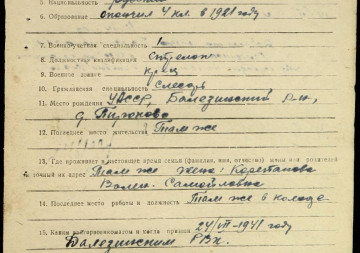 5. Национальность
6. Образование окончил 4 кл. в 1921 году
7. Военно-учетная специальность 1
8. Должностная квалификация Стрелок
9. Военное звание кр-ец
10. Гражданская специальность Слесарь
11. Место рождения УАССР, Балезинский р-н,
д. Пирюково
12. Последнее место жительства Там же
13. Где проживает в настоящее время семья (фамилия, имя, отчество) жены или родителей
точный их адрес Там же жена: Корепанова
Самойловна
14. Последнее место работы и должность Там же в колхозе
15. Каким райвоенкоматом и когда призван 24/VII-1941 году
Балезинским РВК.